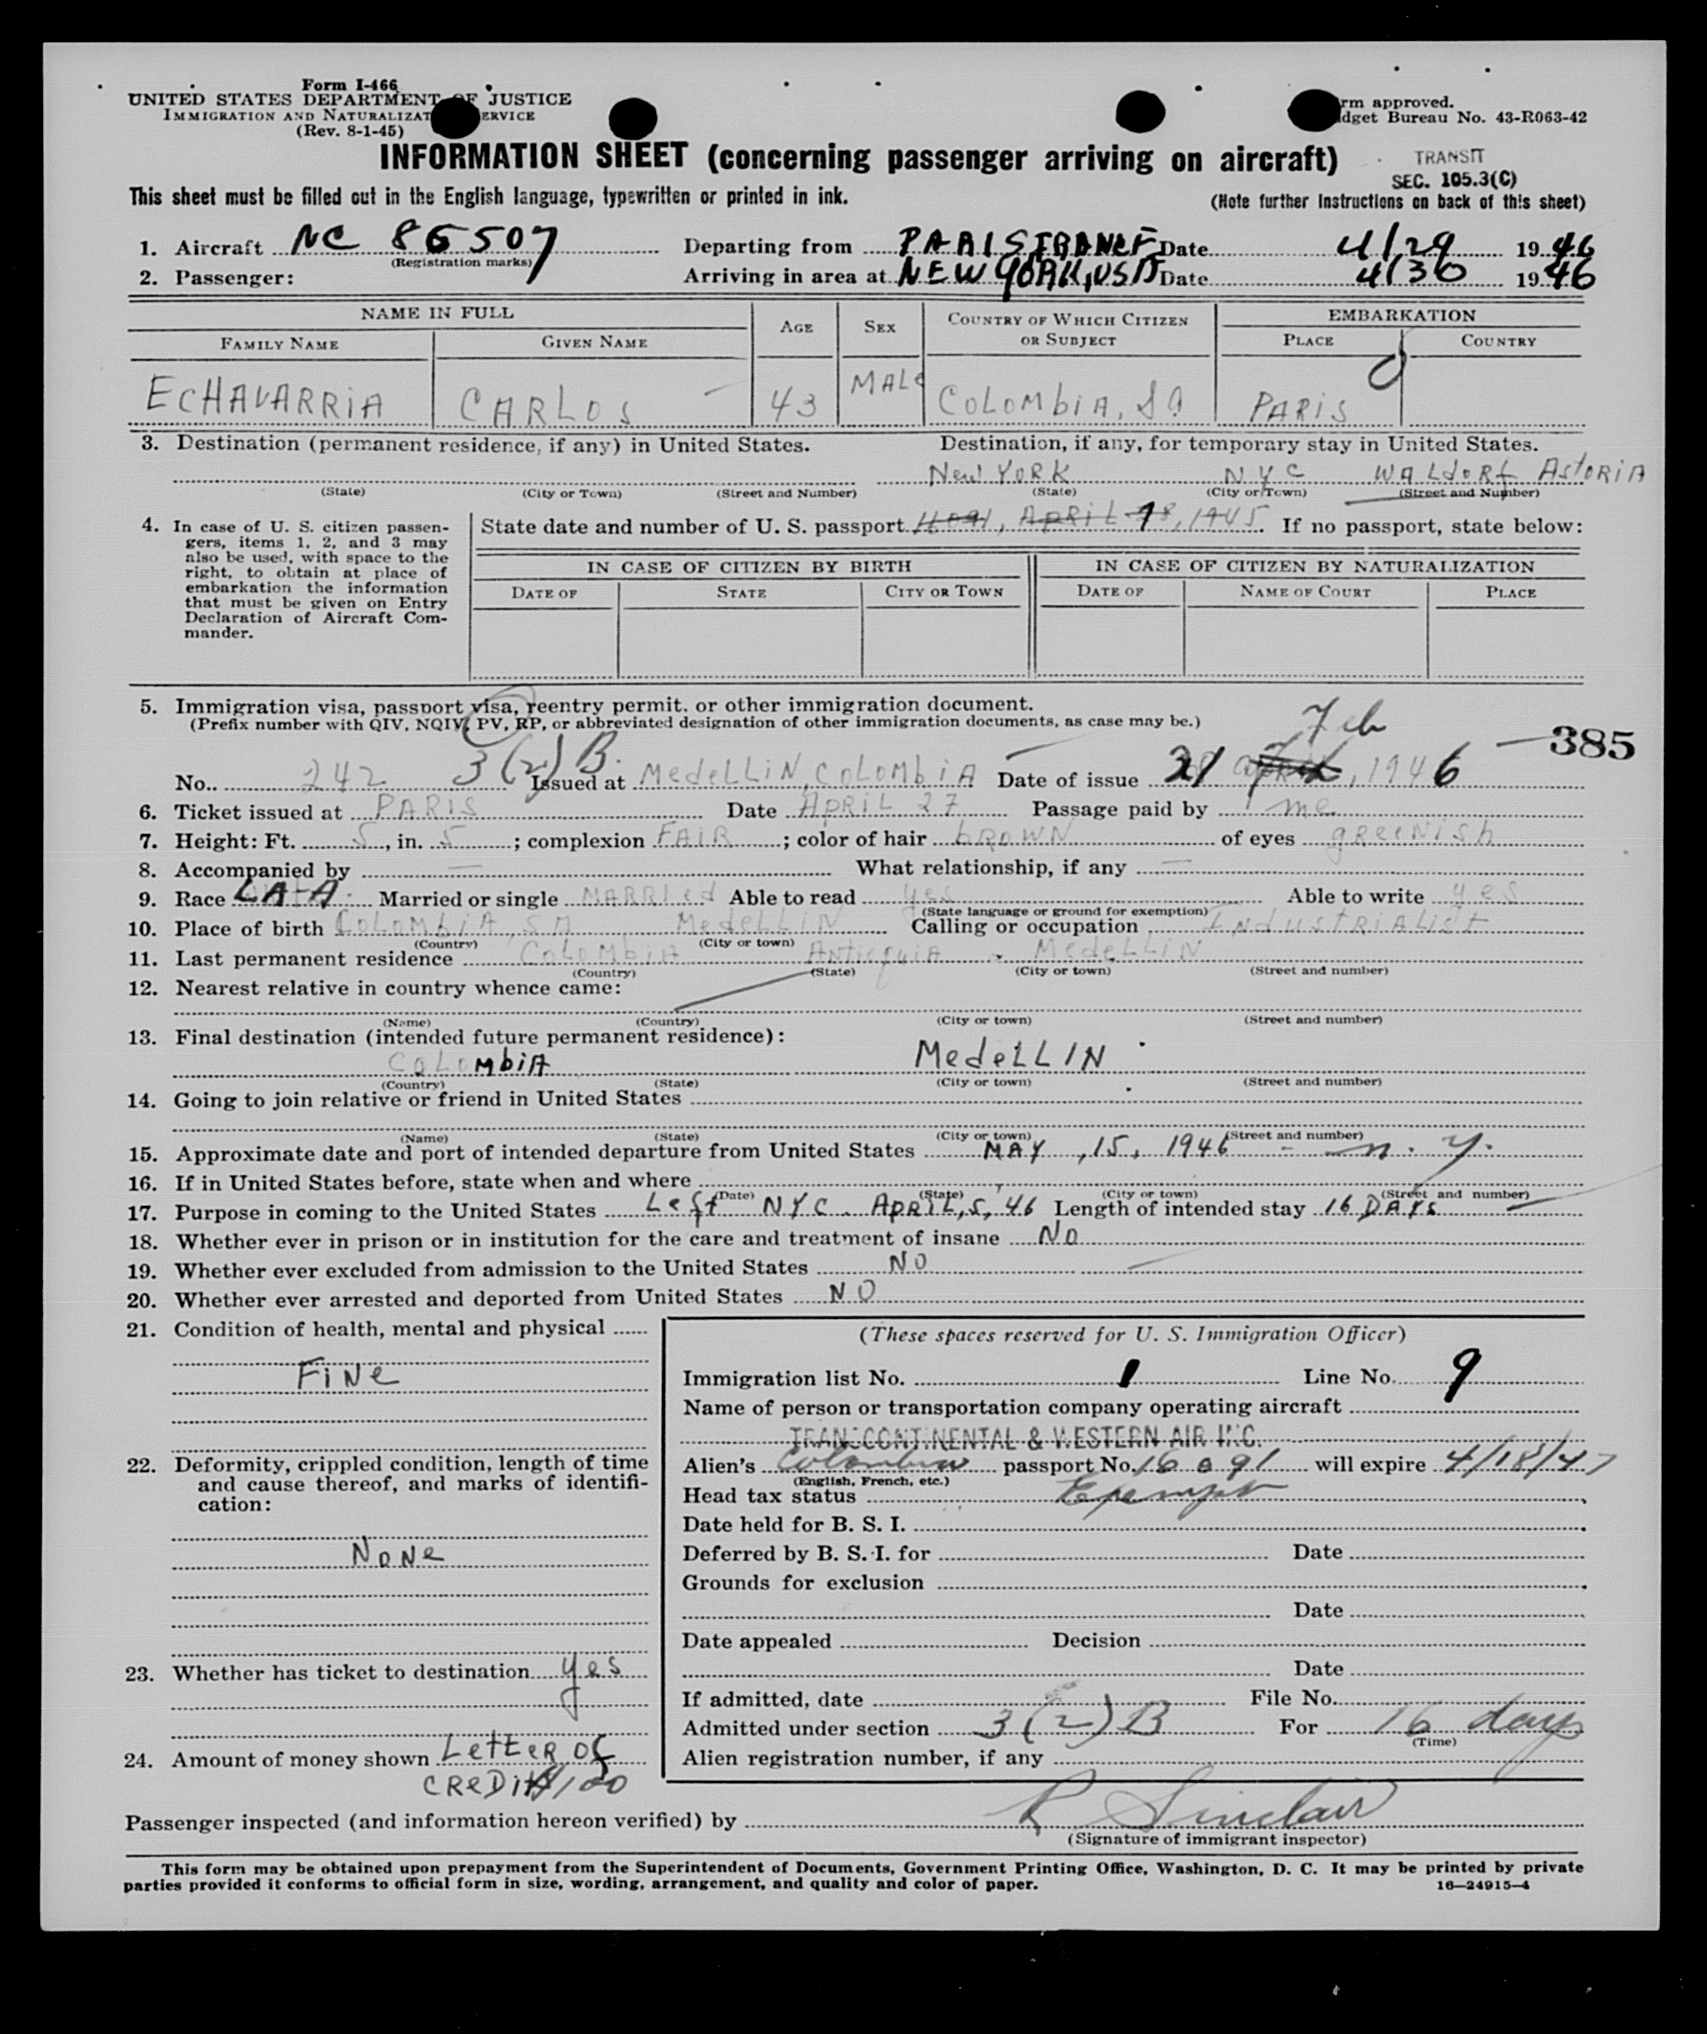 Form I-466
UNITED STATES DEPARTMENT OF JUSTICE
IMMIGRATION AND NATURALIZAT ERVICE
(Rev. 8-1-45)
rm approved.
dget Bureau No. 43-R063-42
INFORMATION SHEET (concerning passenger arriving on aircraft)
TRANSIT
SEC. 105.3(C)
This sheet must be filled out in the English language, typewritten or printed in ink.
(Note further instructions on back of this sheet)
1. Aircraft NC 86507 Departing from PARIS FRANCE Date 4/29 1946
(Registration marks)
2. Passenger: Arriving in area at NEW YORK, USA Date 4/30 1946
NAME IN FULL AGE SEX COUNTRY OF WHICH CITIZEN OR SUBJECT EMBARKATION
FAMILY NAME GIVEN NAME PLACE COUNTRY
ECHAVARRIA CARLOS 43 MALe COLOMbiA, S.A. PARIS
3. Destination (permanent residence, if any) in United States. Destination, if any, for temporary stay in United States.
New YORK NYC WALdORf AstORiA
(State) (City or Town) (Street and Number) (State) (City or Town) (Street and Number)
4. In case of U. S. citizen passengers, items 1, 2, and 3 may also be used, with space to the right, to obtain at place of embarkation the information that must be given on Entry Declaration of Aircraft Commander.
State date and number of U. S. passport APRIL 18, 1945. If no passport, state below:
IN CASE OF CITIZEN BY BIRTH IN CASE OF CITIZEN BY NATURALIZATION
DATE OF STATE CITY OR TOWN DATE OF NAME OF COURT PLACE
5. Immigration visa, passport visa, reentry permit, or other immigration document.
(Prefix number with QIV, NQIV, PV, RP, or abbreviated designation of other immigration documents, as case may be.)
Feb
385
No. 242 3(2)B. Issued at MedeLLiN, COLOMbiA Date of issue 21 April, 1946
6. Ticket issued at PARIS Date APRiL 27 Passage paid by me
7. Height: Ft. 5, in. 5; complexion FAIR; color of hair bROWN of eyes greeNish
8. Accompanied by — What relationship, if any —
9. Race LA-A. Married or single MARRied Able to read yes Able to write yes
(State language or ground for exemption)
10. Place of birth COLOMbiA, SA MedeLLiN Calling or occupation INdUSTRiALiSt
(Country) (City or town)
11. Last permanent residence COLOMbiA ANtioquiA MedeLLiN
(Country) (State) (City or town) (Street and number)
12. Nearest relative in country whence came:
(Name) (Country) (City or town) (Street and number)
13. Final destination (intended future permanent residence):
COLOMbiA MedeLLIN
(Country) (State) (City or town) (Street and number)
14. Going to join relative or friend in United States
(Name) (State) (City or town) (Street and number)
15. Approximate date and port of intended departure from United States MAY, 15, 1946 - n. y.
16. If in United States before, state when and where
(Date) (State) (City or town) (Street and number)
17. Purpose in coming to the United States Left NYC. APRiL, 5, '46 Length of intended stay 16 DAYS
18. Whether ever in prison or in institution for the care and treatment of insane No
19. Whether ever excluded from admission to the United States NO
20. Whether ever arrested and deported from United States NO
21. Condition of health, mental and physical
FiNe
22. Deformity, crippled condition, length of time and cause thereof, and marks of identification:
NoNe
23. Whether has ticket to destination yes
24. Amount of money shown LetteR of
CReDit $100
(These spaces reserved for U. S. Immigration Officer)
Immigration list No. 1 Line No. 9
Name of person or transportation company operating aircraft
TRANSCONTINENTAL & WESTERN AIR INC.
Alien's Colombian passport No. 16091 will expire 4/18/47
(English, French, etc.)
Head tax status Exempt
Date held for B. S. I.
Deferred by B. S. I. for Date
Grounds for exclusion
Date
Date appealed Decision
Date
If admitted, date File No.
Admitted under section 3(2)B For 16 days
(Time)
Alien registration number, if any
Passenger inspected (and information hereon verified) by R Sinclair
(Signature of immigrant inspector)
This form may be obtained upon prepayment from the Superintendent of Documents, Government Printing Office, Washington, D. C. It may be printed by private
parties provided it conforms to official form in size, wording, arrangement, and quality and color of paper.
16—24915-4